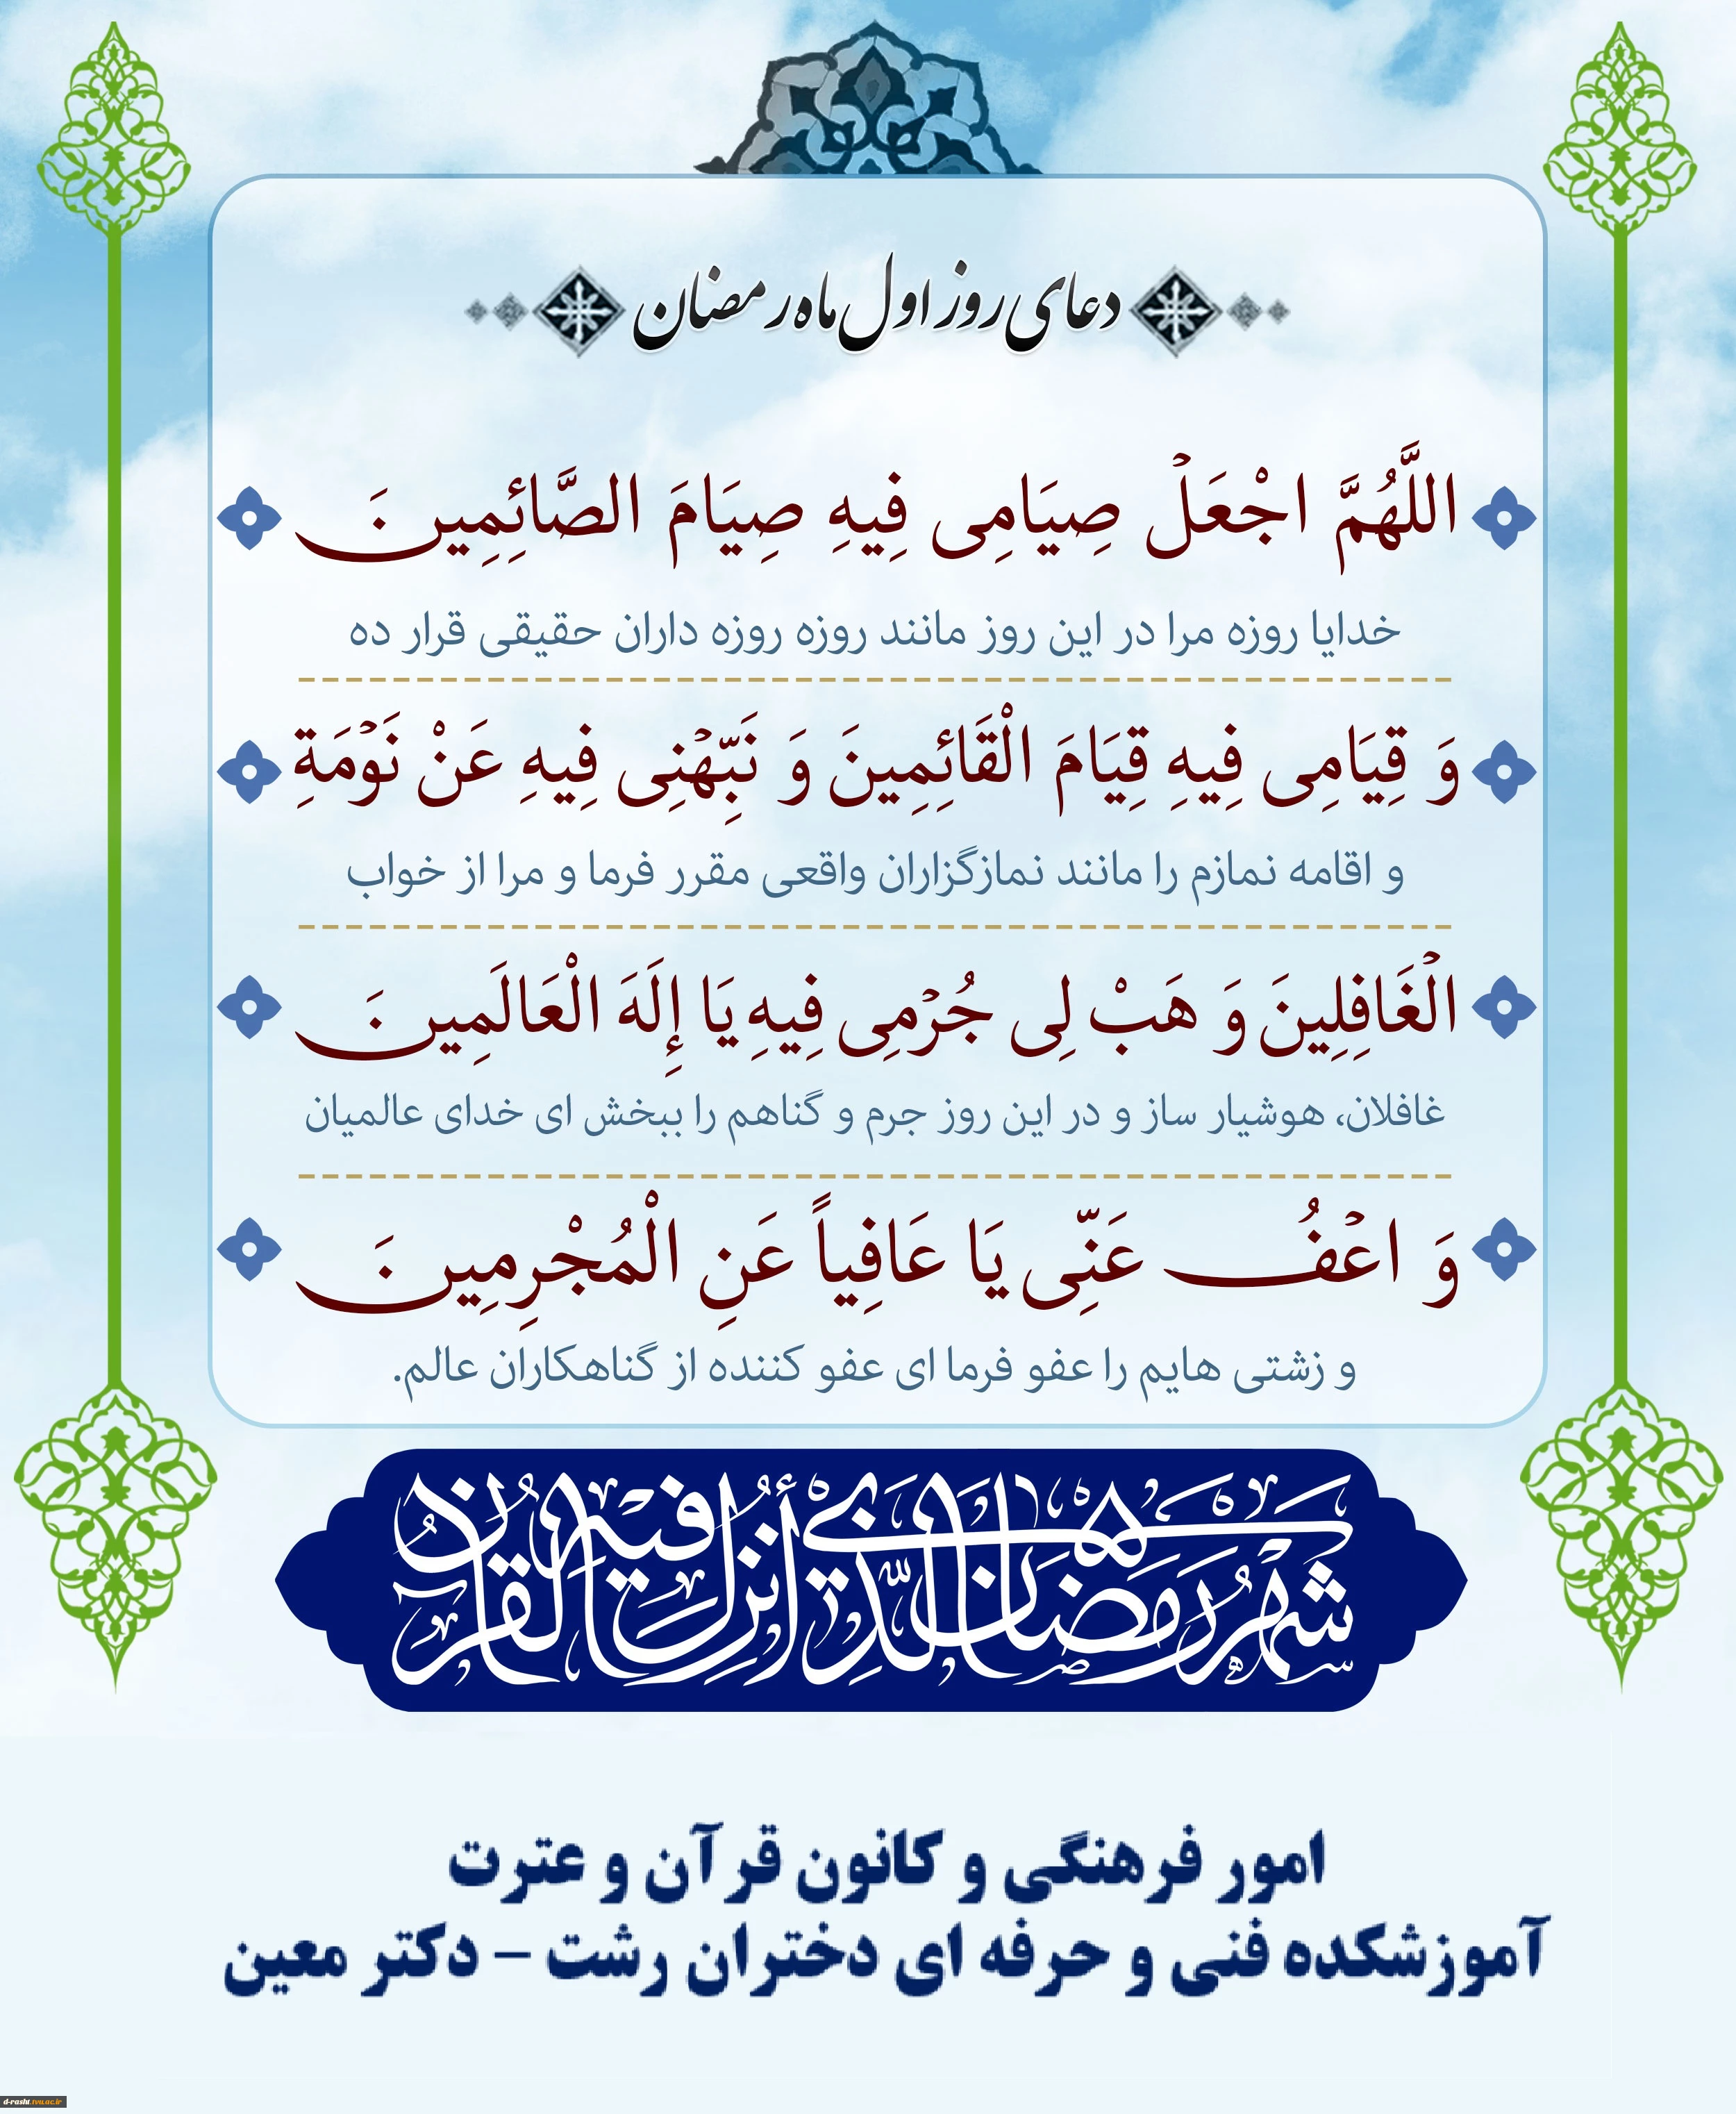 دعای روز اول ماه رمضان
اللَّهُمَّ اجْعَلْ صِيَامِی فِيهِ صِيَامَ الصَّائِمِينَ
خدایا روزه مرا در این روز مانند روزه روزه داران حقیقی قرار ده
وَ قِيَامِی فِيهِ قِيَامَ الْقَائِمِينَ وَ نَبِّهْنِی فِيهِ عَنْ نَوْمَةِ
و اقامه نمازم را مانند نمازگزاران واقعی مقرر فرما و مرا از خواب
الْغَافِلِينَ وَ هَبْ لِی جُرْمِی فِيهِ يَا إِلَهَ الْعَالَمِينَ
غافلان، هوشیار ساز و در این روز جرم و گناهم را ببخش ای خدای عالمیان
وَ اعْفُ عَنِّی يَا عَافِياً عَنِ الْمُجْرِمِينَ
و زشتی هایم را عفو فرما ای عفو کننده از گناهکاران عالم.
شهر رمضان الذي أنزل فيه القرآن
امور فرهنگی و کانون قرآن و عترت
آموزشکده فنی و حرفه ای دختران رشت – دکتر معین
d-rasht.tvu.ac.ir